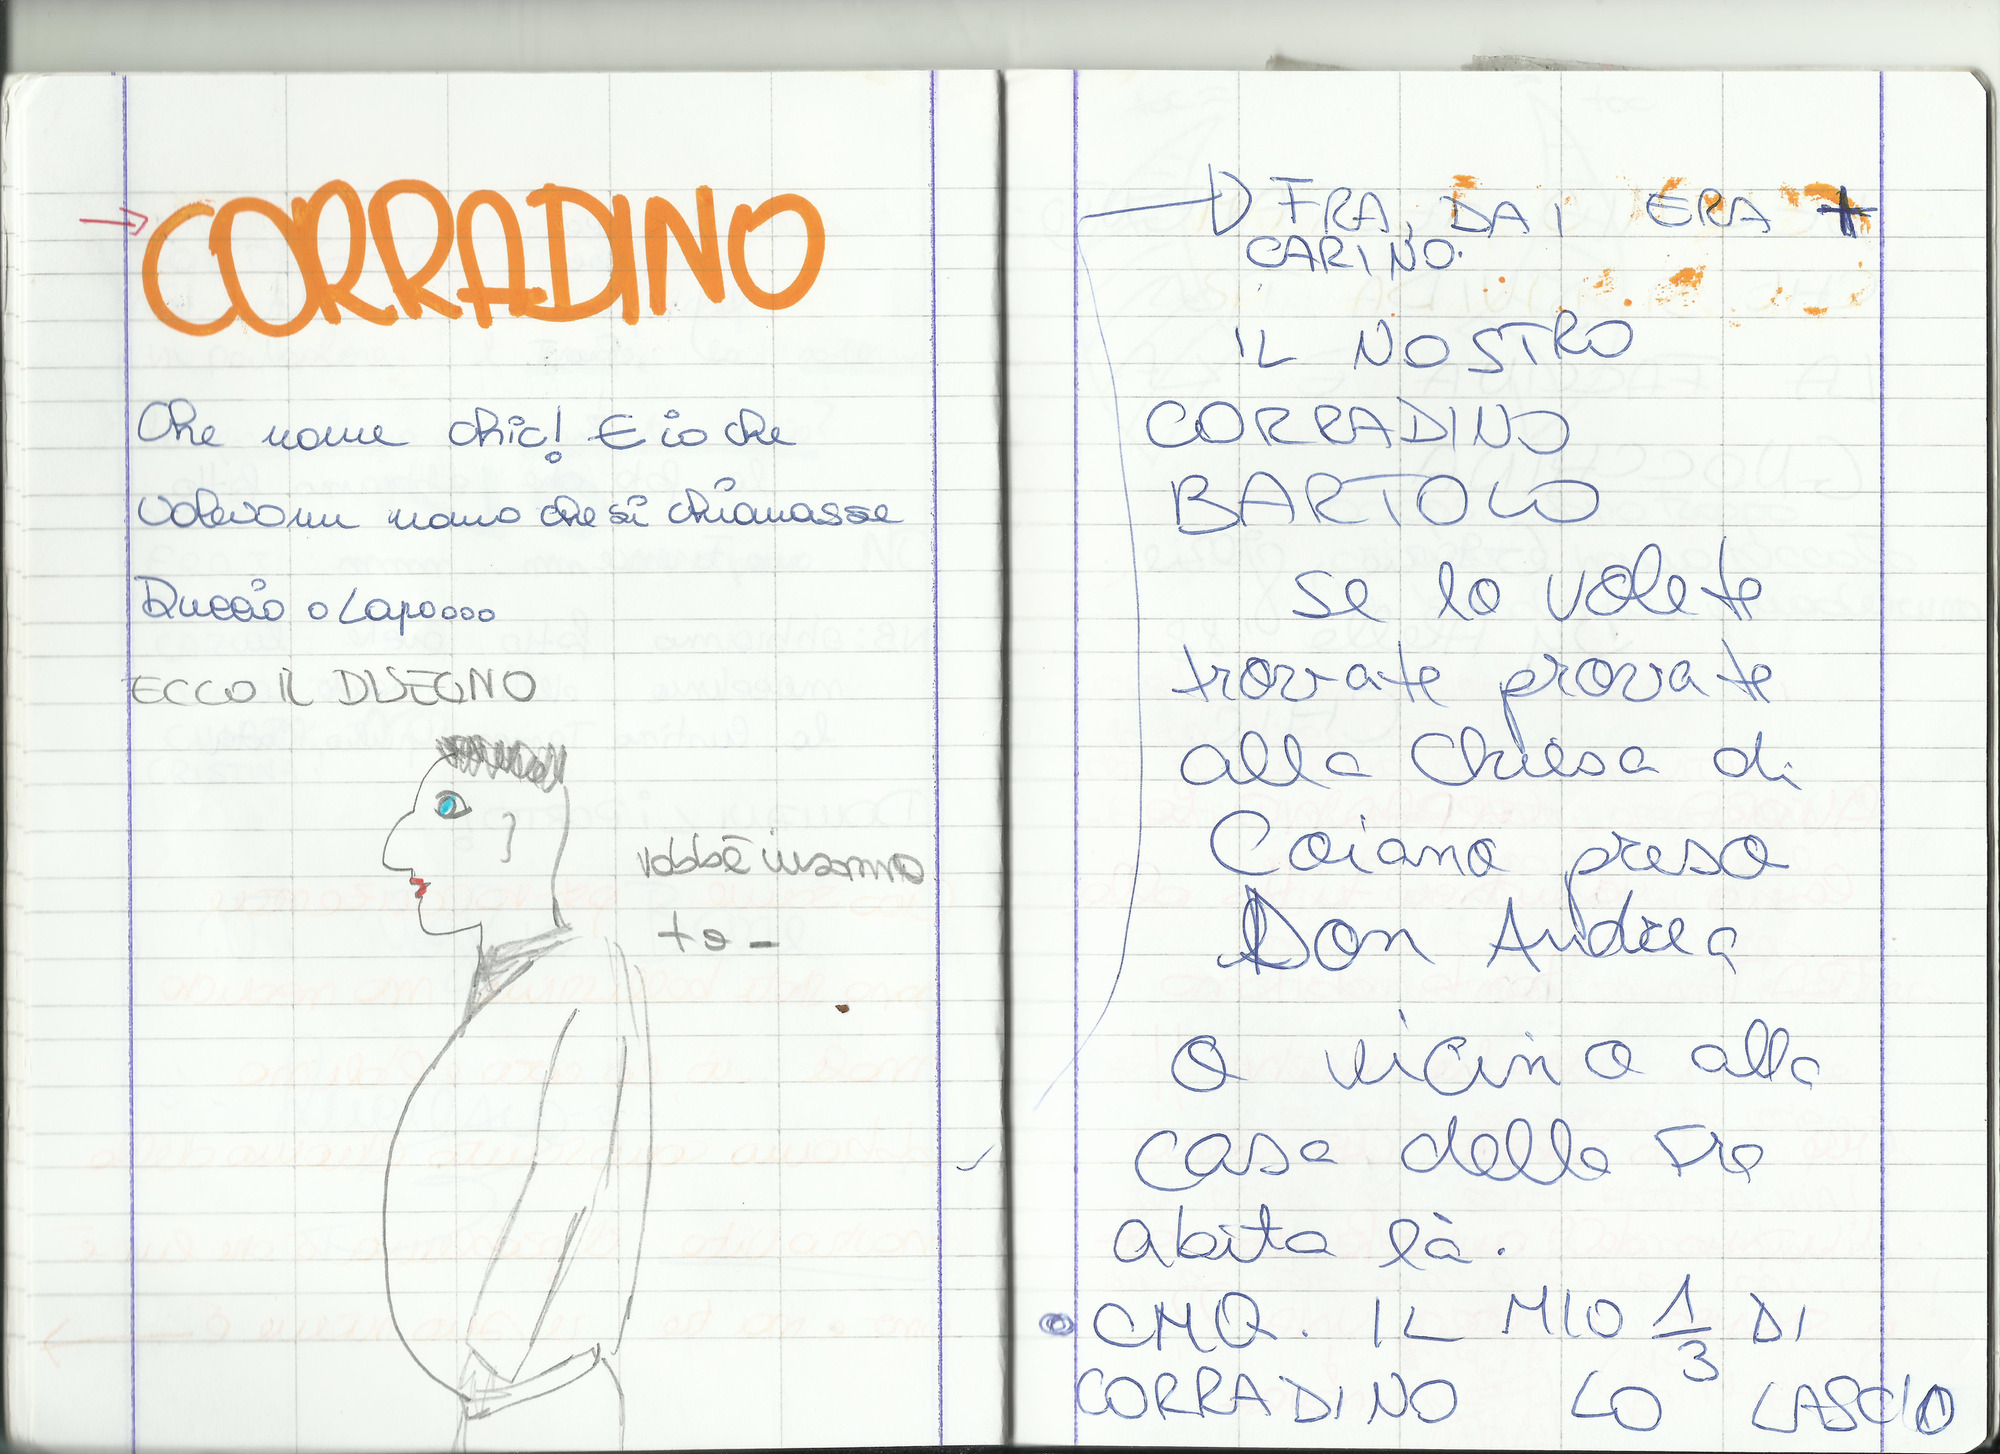 CORRADINO
Che nome chic! E io che
volevo un nano che si chiamasse
Duccio o Lapo...
ECCO IL DISEGNO
vabbè insomma
to -
FRA, DAI ERA +
CARINO.
IL NOSTRO
CORRADINO
BARTOLO
se lo volete
trovate provate
alla Chiesa di
Coiano preso
Don Andrea
o vicino alla
casa della Fra
abita là.
CMQ. IL MIO 1/3 DI
CORRADINO LO LASCIO